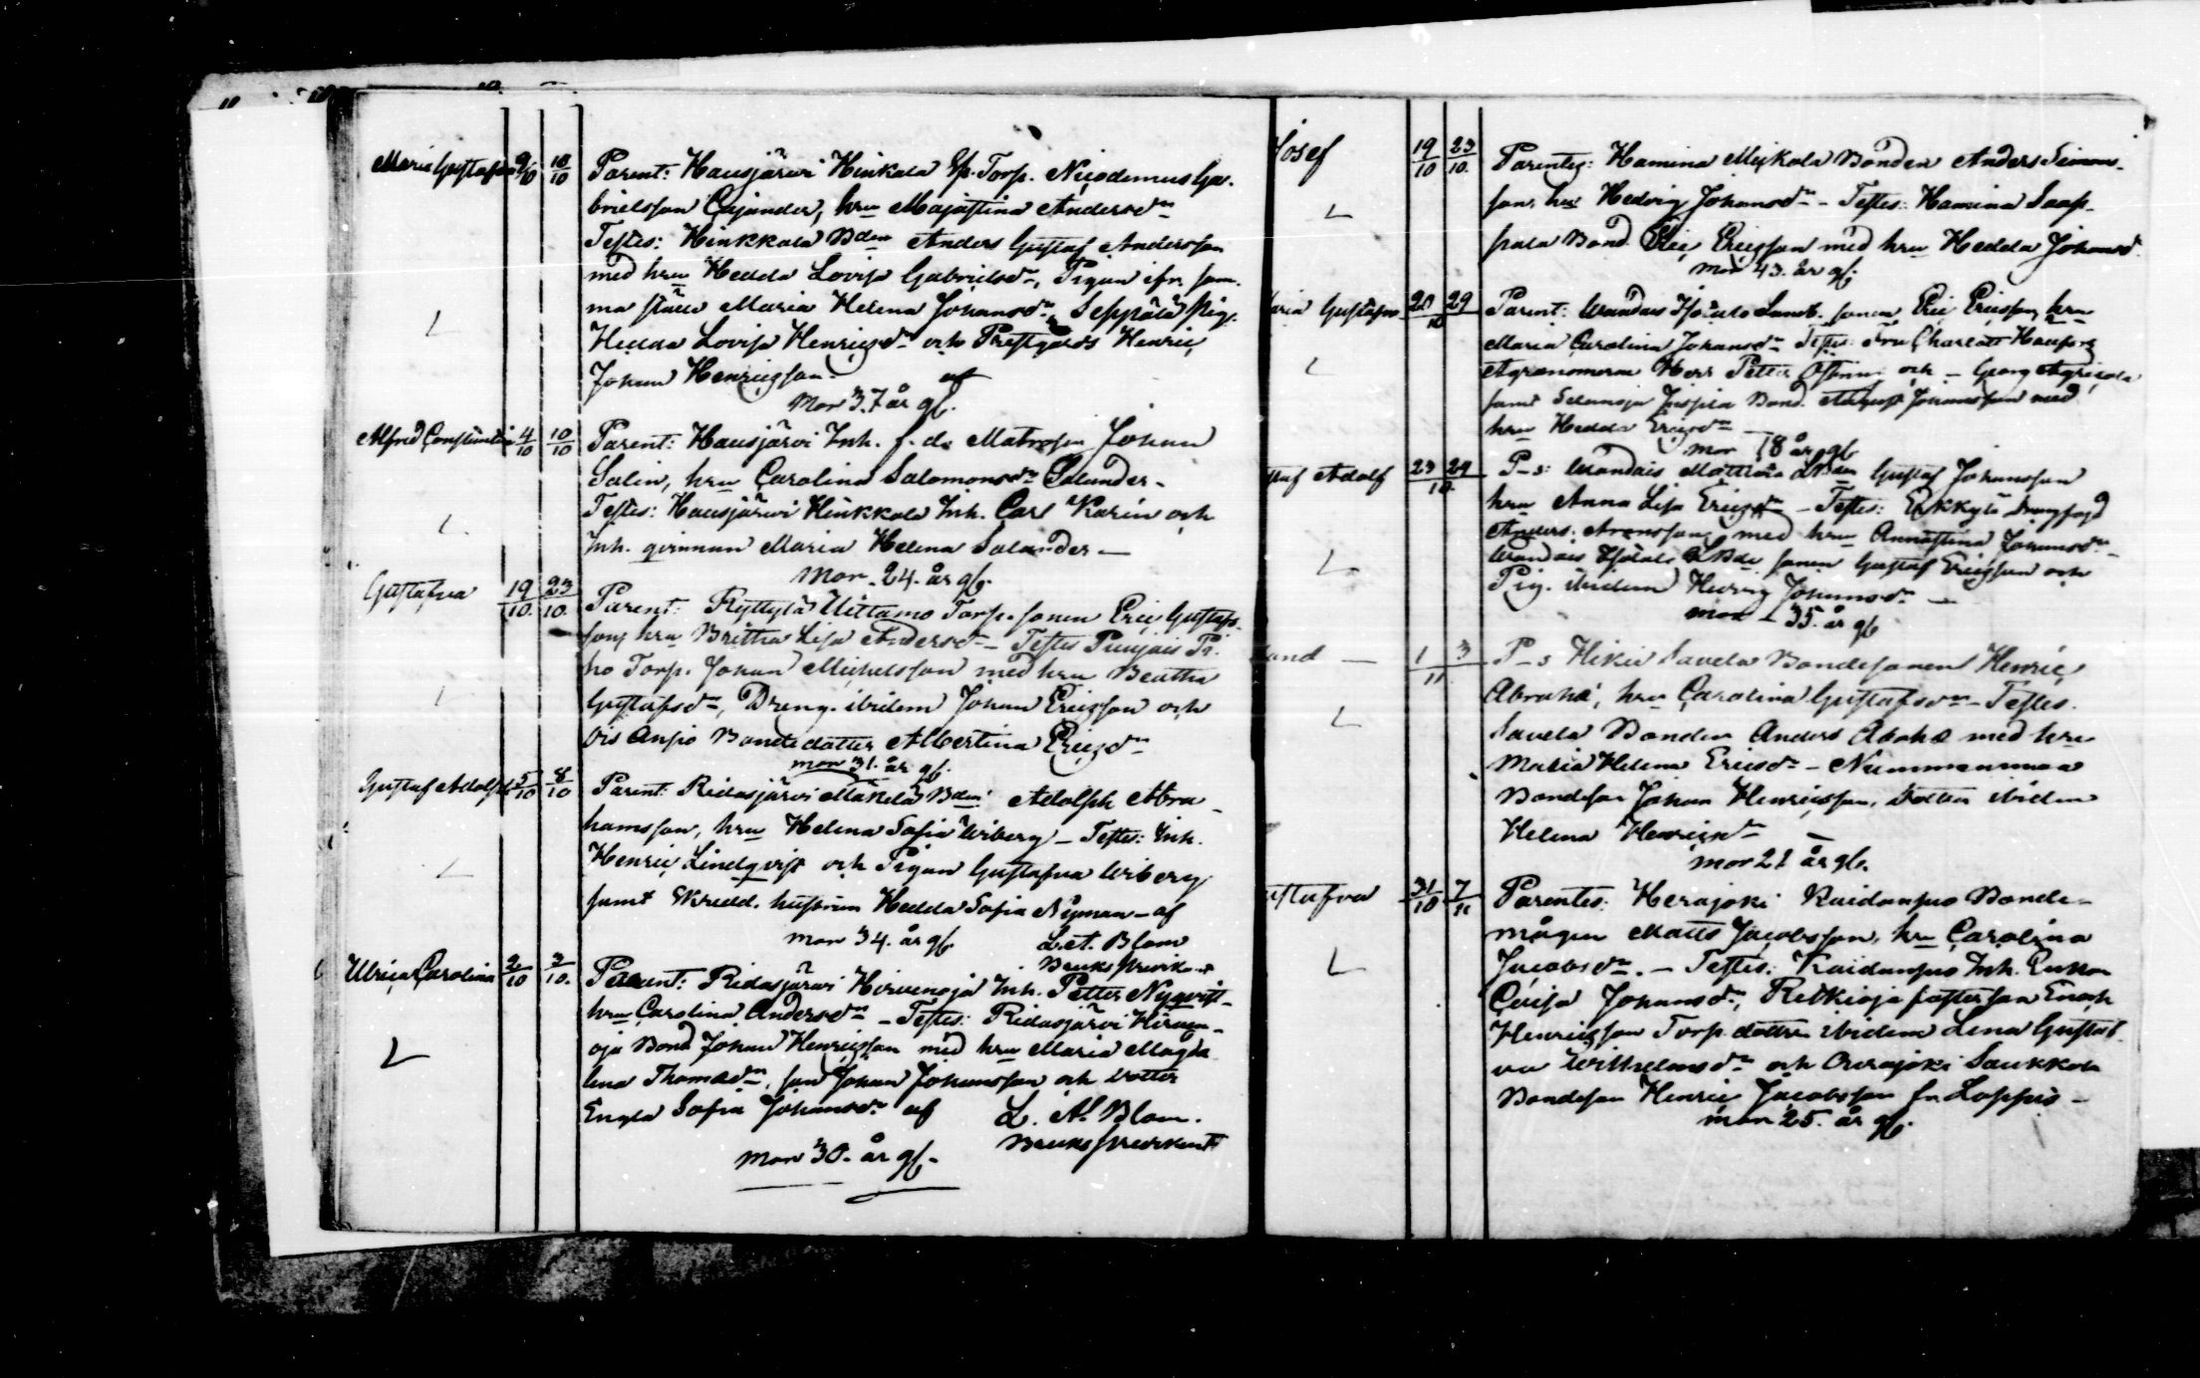 Maria Gustafva 9/10 10/10 Parent: Hausjärwi Hinkala Torp. Nicodemus Ga-
brielsson Cajander, hru Majastina Andersdr
Testes: Hinkkala Bden Anders Gustaf Andersson
med hru Hedda Lovisa Gabrielsdr, Pigan ifr. sam-
ma ställe Maria Helena Johansdr, Seppälä Pig.
Hedda Lovisa Henricsdr och Prestgårds Henric
Johan Henricsson
Mor 37 år gl.
Alfred Constantin 4/10 10/10 Parent: Hausjärvi Inh. f. d. Matrosen Johan
Salin, hru Carolina Salomonsdr Salander -
Testes: Hausjärvi Hinkkala Inh. Carl Karin och
Inh. qvinnan Maria Helena Salander -
Mor. 24. år gl.
Gustafva 19/10. 23/10. Parent: Ryttylä Uittamo Torp. sonen Eric Gustafs-
son, hru Britha Lisa Andersdr - Testes Punjais
Torp. Johan Michelsson med hru Beatha
Gustafsdr, Dreng. ibidem Johan Ericsson och
Bondedotter Albertina Ericsdr
mor 31. år gl.
Gustaf Adolph 5/10 8/10 Parent: Ridasjärvi Mäkelä Bden Adolph Abra-
hamsson, hru Helena Sofia Wiberg - Testes: Inh.
Henric Lindqvist och Pigan Gustafva Wiberg
samt Skredd. hustrun Hedda Sofia Nyman - af
mor 34. år gl. L. A. Blom
Ulrica Carolina 2/10 3/10. Parent: Ridasjärwi Hirvenoja Inh. Petter Nyqvist -
hru Carolina Andersdr - Testes: Ridasjärvi Hirven-
oja Bond Johan Henricsson med hru Maria Magda-
lena Thomasdr, son Johan Johansson och dotter
Engla Sofia Johansdr af L. A. Blom.
Mor 30. år gl.
Josef 19/10 23/10. Parentes: Hamina Mickola Bonden Anders Simons-
son, hru Hedvig Johansdr - Testes: Hamina Saap-
pala Bond. Eric Ericsson med hru Hedda Johansd.
mor 43. år gl.
aria Gustafva 20 29/10 Parent: Wandais Landb. sonen Eric Ericsson, hru
Maria Carolina Johansdr Testes: Fru Charlott
Agronomerne Herr Petter och - Georg Agricola
samt Bond. August Johansson med
hru Hedda Ericsdr
mor 18 år gl
staf Adolf 23 29/10. P-s: Wandais Mattila Gustaf Johansson
hru Anna Lisa Ericsdr - Testes: Erkkylä
Anders Aronsson med hru Annastina Johansdr -
Wandais sonen Gustaf Ericsson och
Pig. ibidem Hedvig Johansdr -
mor 35. år gl
and - 1 3/11 P-s Hikiä Savela Bondesonen Henric
Abrahs', hru Carolina Gustafsdr - Testes.
Savela Bonden Anders med hru
Maria Helena Ericsdr - Nummenmaa
Bondeson Johan Henricsson, Dotter ibidem
Helena Henricsdr -
mor 21 år gl.
ustafva 31/10 7/11 Parentes: Herajoki Raidanpää Bonde-
mågen Matts Jacobsson, hru Carolina
Jacobsdr. - Testes: Inh. Enkan
Cajsa Johansdr, Retkioja fosterson Enoch
Henricsson Torp. dottren ibidem Lena Gustaf-
va Wilhelmsdr och Saukkola
Bondeson Henric Jacobsson fr. Loppis -
mor 25. år gl.